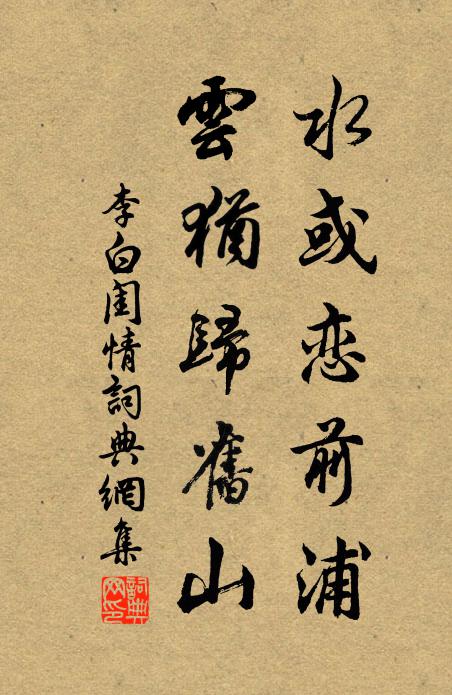 水或恋前浦
雲猶歸舊山
李白閨情詞典網集
詞典网印